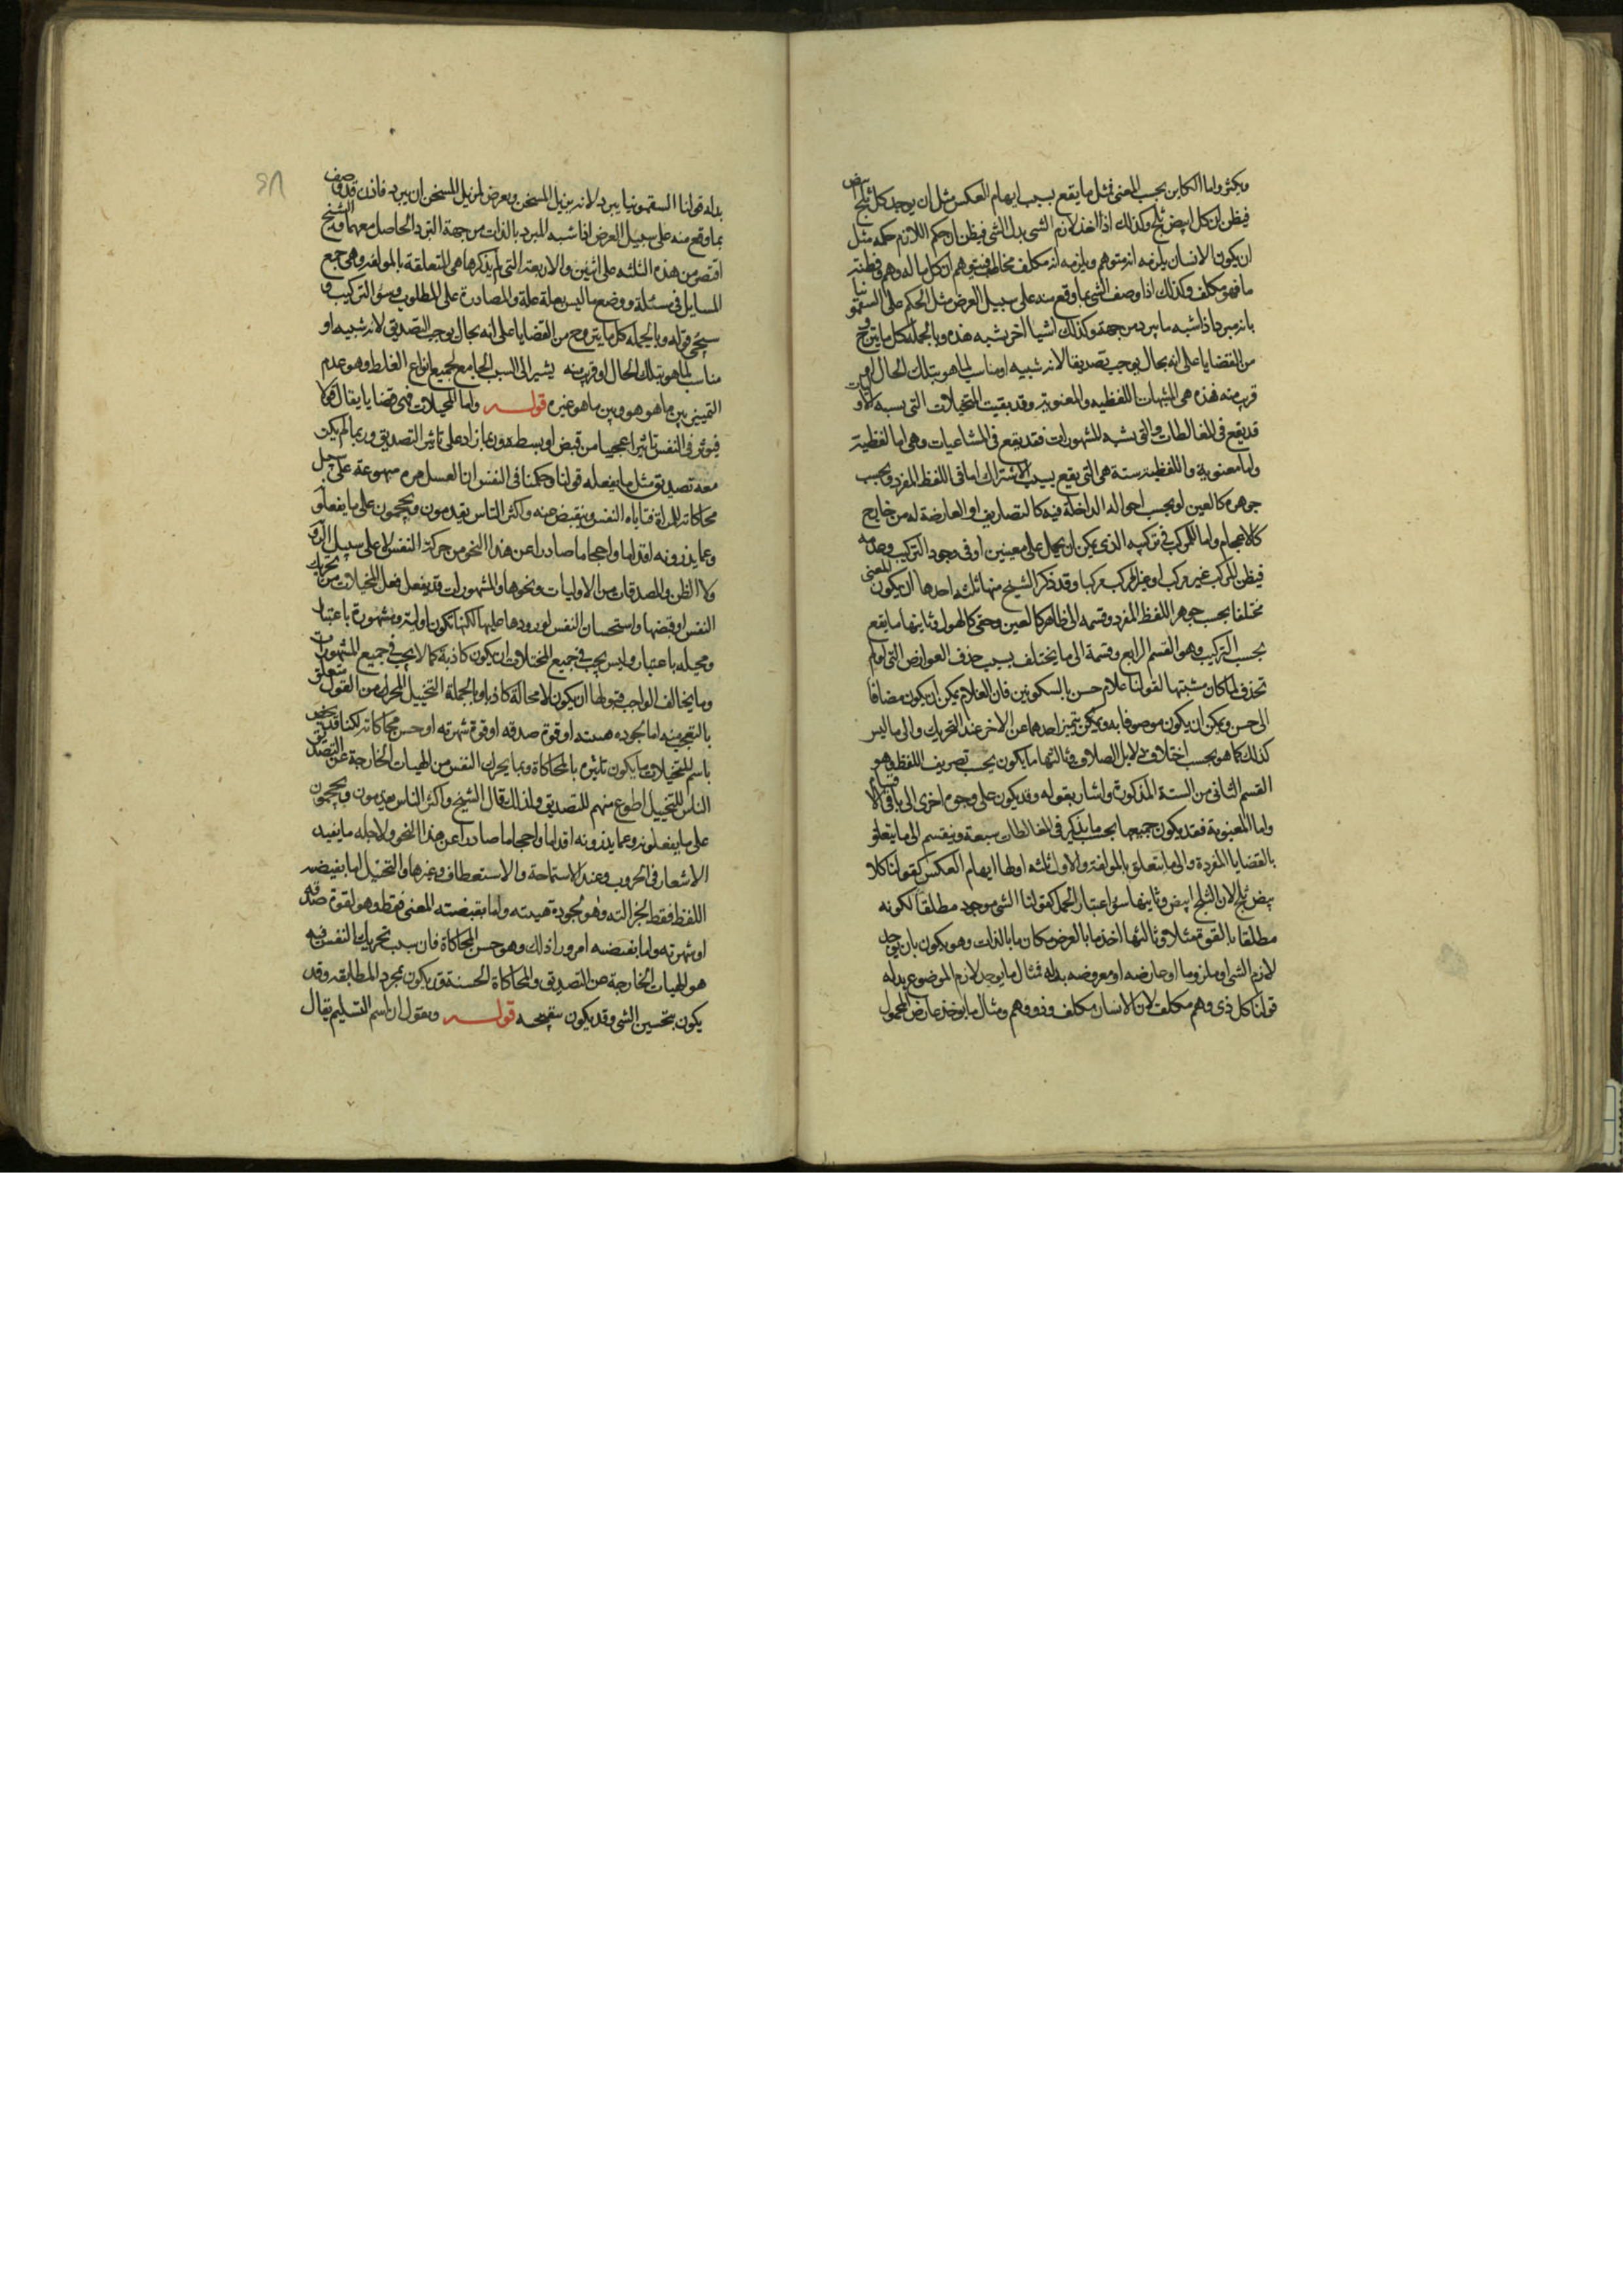 ويكثر واما الكاين بحسب المعنى فمثل ما يقع بسبب ايهام العكس مثل ان يوجد كل ثلج ابيض
فيظن ان كل ابيض ثلج وكذلك اذا اخذ لازم الشى بدل الشى فيظن ان حكم اللازم حكمه مثل
ان يكون الانسان يلزمه انه متوهم ويلزمه انه مكلف مخاطب فيتوهم ان كل ماله وهم وفطنة
ما فهو مكلف وكذلك اذا وصف الشى بما وقع منه على سبيل العرض مثل الحكم على السقمونيا
بانه مبرد اذا شبه ما يبرد من جهة وكذلك اشيا اخر تشبه هذه وبالجملة كل ما يتروج
من القضايا على انه بحال يوجب تصديقا لانه شبيه او مناسب لما هو بتلك الحال او
قريب منه فهذه هى المشبهات اللفظيه والمعنوية وقد بقيت المتخيلات التى تشبه الاوليات
قد يقع فى المغالطات والتى تشبه المشهورات فقد يقع فى المشاغبات وهى اما لفظية
واما معنوية واللفظية ستة هى التى يقع بسبب الاشتراك اما فى اللفظ المفرد وبحسب
جوهره كالعين او بحسب احواله الداخلة فيه كالتصاريف او العارضة له من خارج
كالاعجام واما المركب فى تركيبه الذى يمكن ان يحمل على معنيين او فى وجود التركيب وعدمه
فيظن المركب غير مركب او غير المركب مركبا وقد ذكر الشيخ منها ثلثه احدها ان يكون المعنى
مختلفا بحسب جوهر اللفظ المفرد وقسمه الى ظاهر كالعين وخفى كالهول وثانيها ما يقع
بحسب التركيب وهو القسم الرابع وقسمة الى ما يختلف بسبب حذف العوارض التى لو لم
تحذف لما كان مشبتها كقولنا غلام حسن بالسكونين فان الغلام يمكن ان يكون مضافا
الى حسن ويمكن ان يكون موصوفا به ويمكن يتميز احدهما عن الاخر عند التحريك والى ما ليس
كذلك كما هو بحسب اختلاف دلايل الصلات وثالثها ما يكون بحسب تصريف اللفظ وهو
القسم الثانى من الستة المذكورة واشار بقوله وقد يكون على وجوه اخرى الى باقى الاقسام
واما المعنوية فقد يكون جميعها بحسب ما يذكر فى المغالطات سبعة وينقسم الى ما يتعلق
بالقضايا المفردة والى ما يتعلق بالمولفة والاول ثلثه اولها ايهام العكس كقولنا كل
بيض ثلج لان الثلج ابيض وثانيها سوء اعتبار الحمل كقولنا الشى موجود مطلقا لكونه
مطلقا بالقوة مثلا وثالثها اخذ ما بالعرض مكان ما بالذات وهو يكون بان يوجد
لازم الشى او ملزوما او عارضه او معروضه بدله فمثال ما يوجد لازم الموضوع بدله
قولنا كل ذى وهم مكلف لان الانسان مكلف وذو وهم ومثال ما يوخذ عارض المحمول
بدله قولنا السقمونيا يبرد لانه يزيل المسخن ويعرض لمزيل المسخن ان يبرد فاذن قد وصف
بما وقع منه على سبيل العرض اذا شبه المبرد بالذات من جهة التبرد الحاصل معهما والشيخ
اقتصر من هذه الثلثه على اثنين والاربعة التى لم يذكرها هى المتعلقة بالمولفة وهى جمع
المسايل فى مسئلة ووضع ما ليس بعلة علة والمصادرة على المطلوب وسوء التركيب و
سيجى قوله وبالجملة كل ما يتروج من القضايا على انه بحال يوجب التصديق لانه شبيه او
مناسب لما هو بتلك الحال او قريب منه يشير الى السبب الجامع لجميع انواع الغلط وهو عدم
التمييز بين ما هو هو وبين ما هو غيره قوله واما المخيلات فهى قضايا يقال قولا
فيوثر فى النفس تاثيرا عجيبا من قبض او بسط وربما زاد على تاثير التصديق وربما لم يكن
معه تصديق مثل ما يفعله قولنا وحكمنا فى النفس ان العسل مره مهوعة على سبيل
محاكاته للمرة فتاباه النفس وينقبض عنه واكثر الناس يقدمون ويحجمون على ما يفعلو
وعما يذرونه اقداما واحجاما صادرا عن هذا النحو من حركة النفس لا على سبيل الروية
ولا الظن والمصدقات من الاوليات ونحوها والمشهورات قد يفعل فعل المخيلات من تحريك
النفس او قبضها واستحسان النفس لورودها عليها لكنها تكون اولية ومشهورة باعتبار
ومخيله باعتبار وليس يجب فى جميع المخيلات ان يكون كاذبة كما لا يجب فى جميع المشهورات
وما يخالف الواجب قبولها ان يكون لا محالة كاذبا وبالجملة التخييل المحرك من القول متعلق
بالتعجب منه اما لجودة هيئته او قوة صدقه او قوة شهرته او حسن محاكاته لكنا قد نخص
باسم المتخيلات ما يكون تاثيره بالمحاكاة وبما يحرك النفس من الهيات الخارجة عن التصديق
الناس للتخييل اطوع منهم للتصديق ولذلك قال الشيخ واكثر الناس يقدمون ويحجمون
على ما يفعلونه وعما يذرونه اقداما واحجاما صادرا عن هذا النحو ولاجله ما يفيد
الاشعار فى الحروب وعند الاستماحة والاستعطاف وغيرها والتخيل اما يقتضيه
اللفظ فقط لجزالته وهو لجودة هيئته واما يقتضيه المعنى فقط وهو لقوة صدقه
او شهرته واما يقتضيه امر ورا ذلك وهو حسن المحاكاة فان سبب تحريك النفس فيه
هو الهيات الخارجة عن التصديق والمحاكاة الحسنة قد يكون بمجرد المطابقه وقد
يكون بتحسين الشى وقد يكون بتقبيحه قوله ويقول ان اسم التسليم يقال